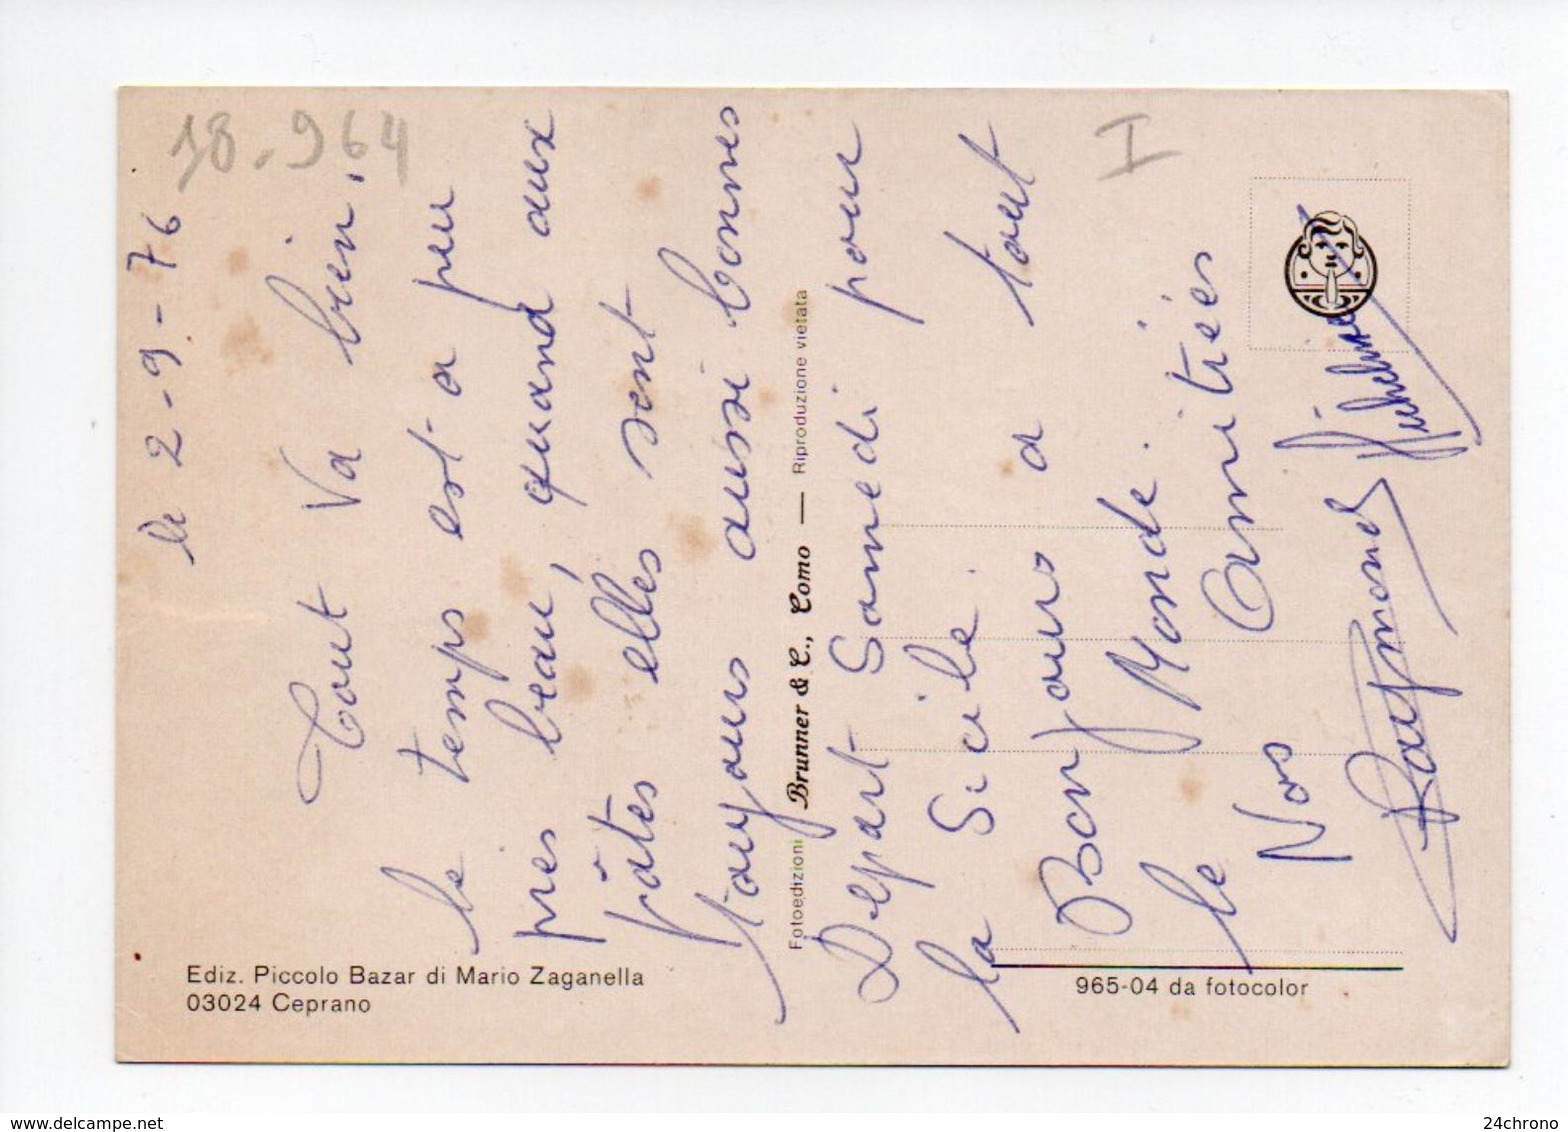 18.964
I
le 2-9-76
Tout Va bien,
le temps est a peu
pres beau, quand aux
pâtes elles sont
toujours aussi bonnes
Depart Samedi pour
la Sicile.
Bonjours a tout
le Monde.
Nos Amitiés
Raymond
Fotoedizioni Brunner & C., Como — Riproduzione vietata
Ediz. Piccolo Bazar di Mario Zaganella
03024 Ceprano
965-04 da fotocolor
www.delcampe.net
24chrono